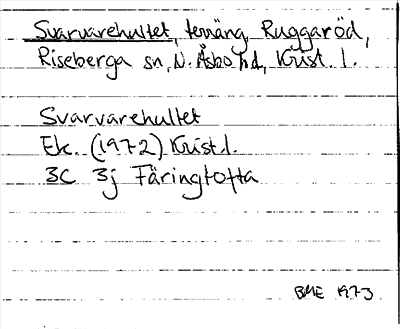 Svarvarehultet, terräng Ruggaröd,
Riseberga sn, N. Åsbo hd, Krist. l.
Svarvarehultet
Ek. (1972) Krist l.
3C 3j Färingtofta
BME 1973